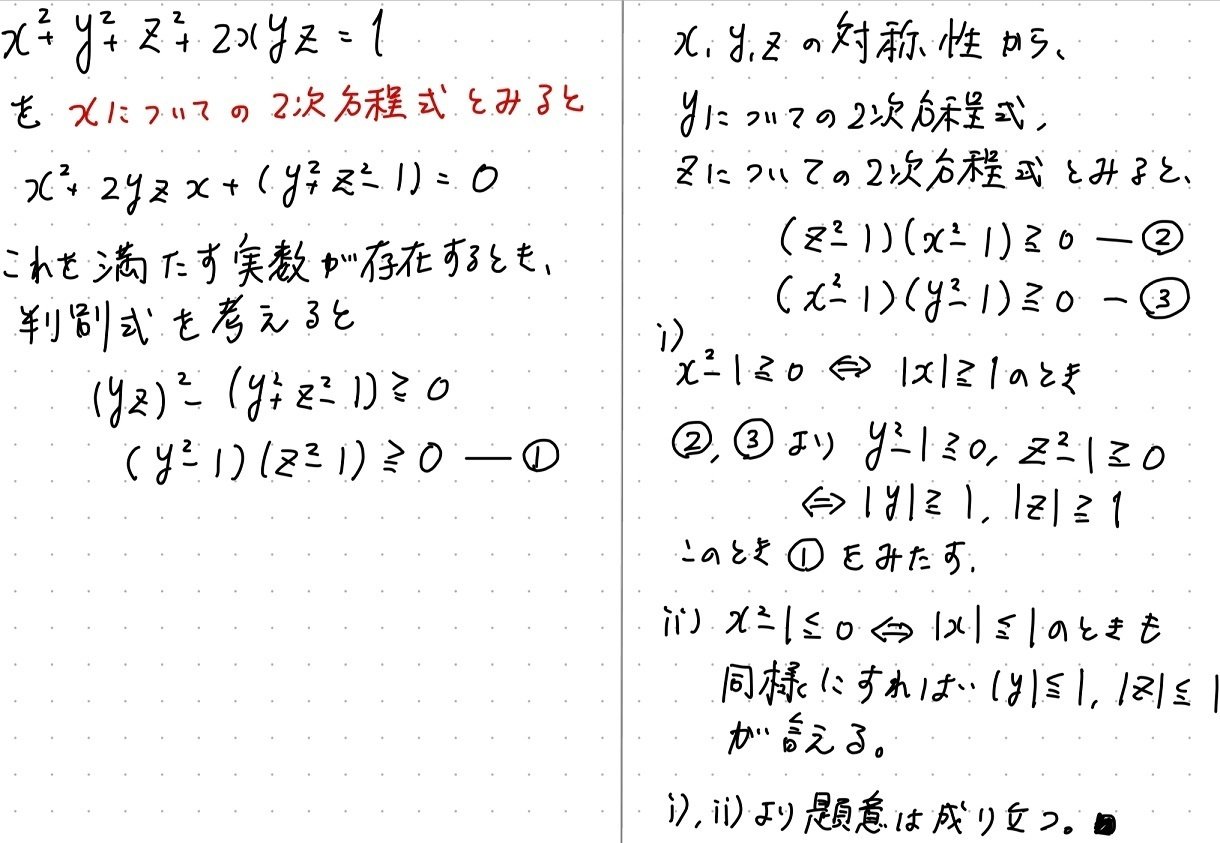 x²+y²+z²+2xyz=1
を xについての2次方程式とみると
x²+2yzx+(y²+z²-1)=0
これを満たす実数が存在するとき、
判別式を考えると
(yz)²-(y²+z²-1)≧0
(y²-1)(z²-1)≧0 ―①
x, y, zの対称性から、
yについての2次方程式,
zについての2次方程式とみると、
(z²-1)(x²-1)≧0 ―②
(x²-1)(y²-1)≧0 ―③
i)
x²-1≧0 ⇔ |x|≧1のとき
②, ③より y²-1≧0, z²-1≧0
⇔ |y|≧1, |z|≧1
このとき①をみたす.
ii) x²-1≦0 ⇔ |x|≦1のときも
同様にすれば |y|≦1, |z|≦1
が言える。
i), ii)より題意は成り立つ。